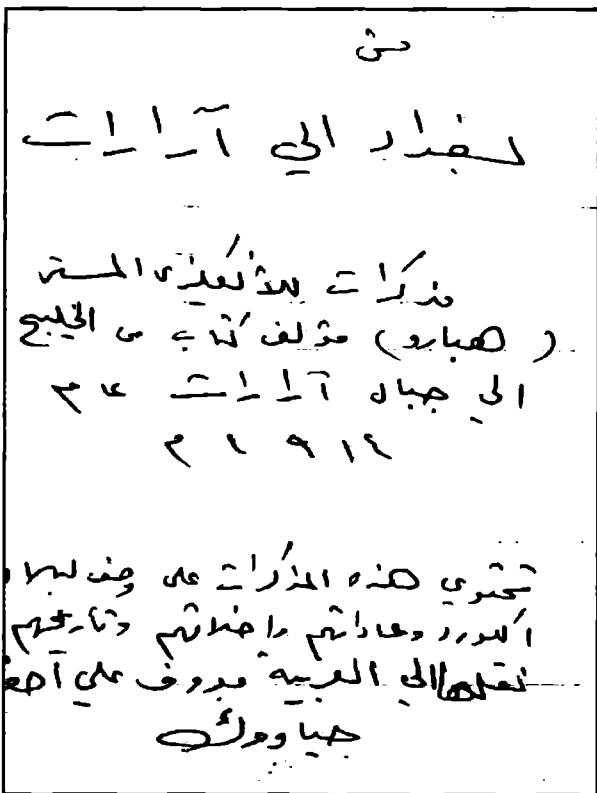 من
بغداد الي آرارات
مذكرات للانكليزى المستر
( هبارو) مؤلف كتاب من الخليج
الي جبال آرارات عام
١٩١٤ م
تحتوي هذه المذكرات على وصف لبلاد
اكورد وعاداتهم واخلاقهم وتاريخهم
نقلها الي العربية معروف علي أصغر
جياووك